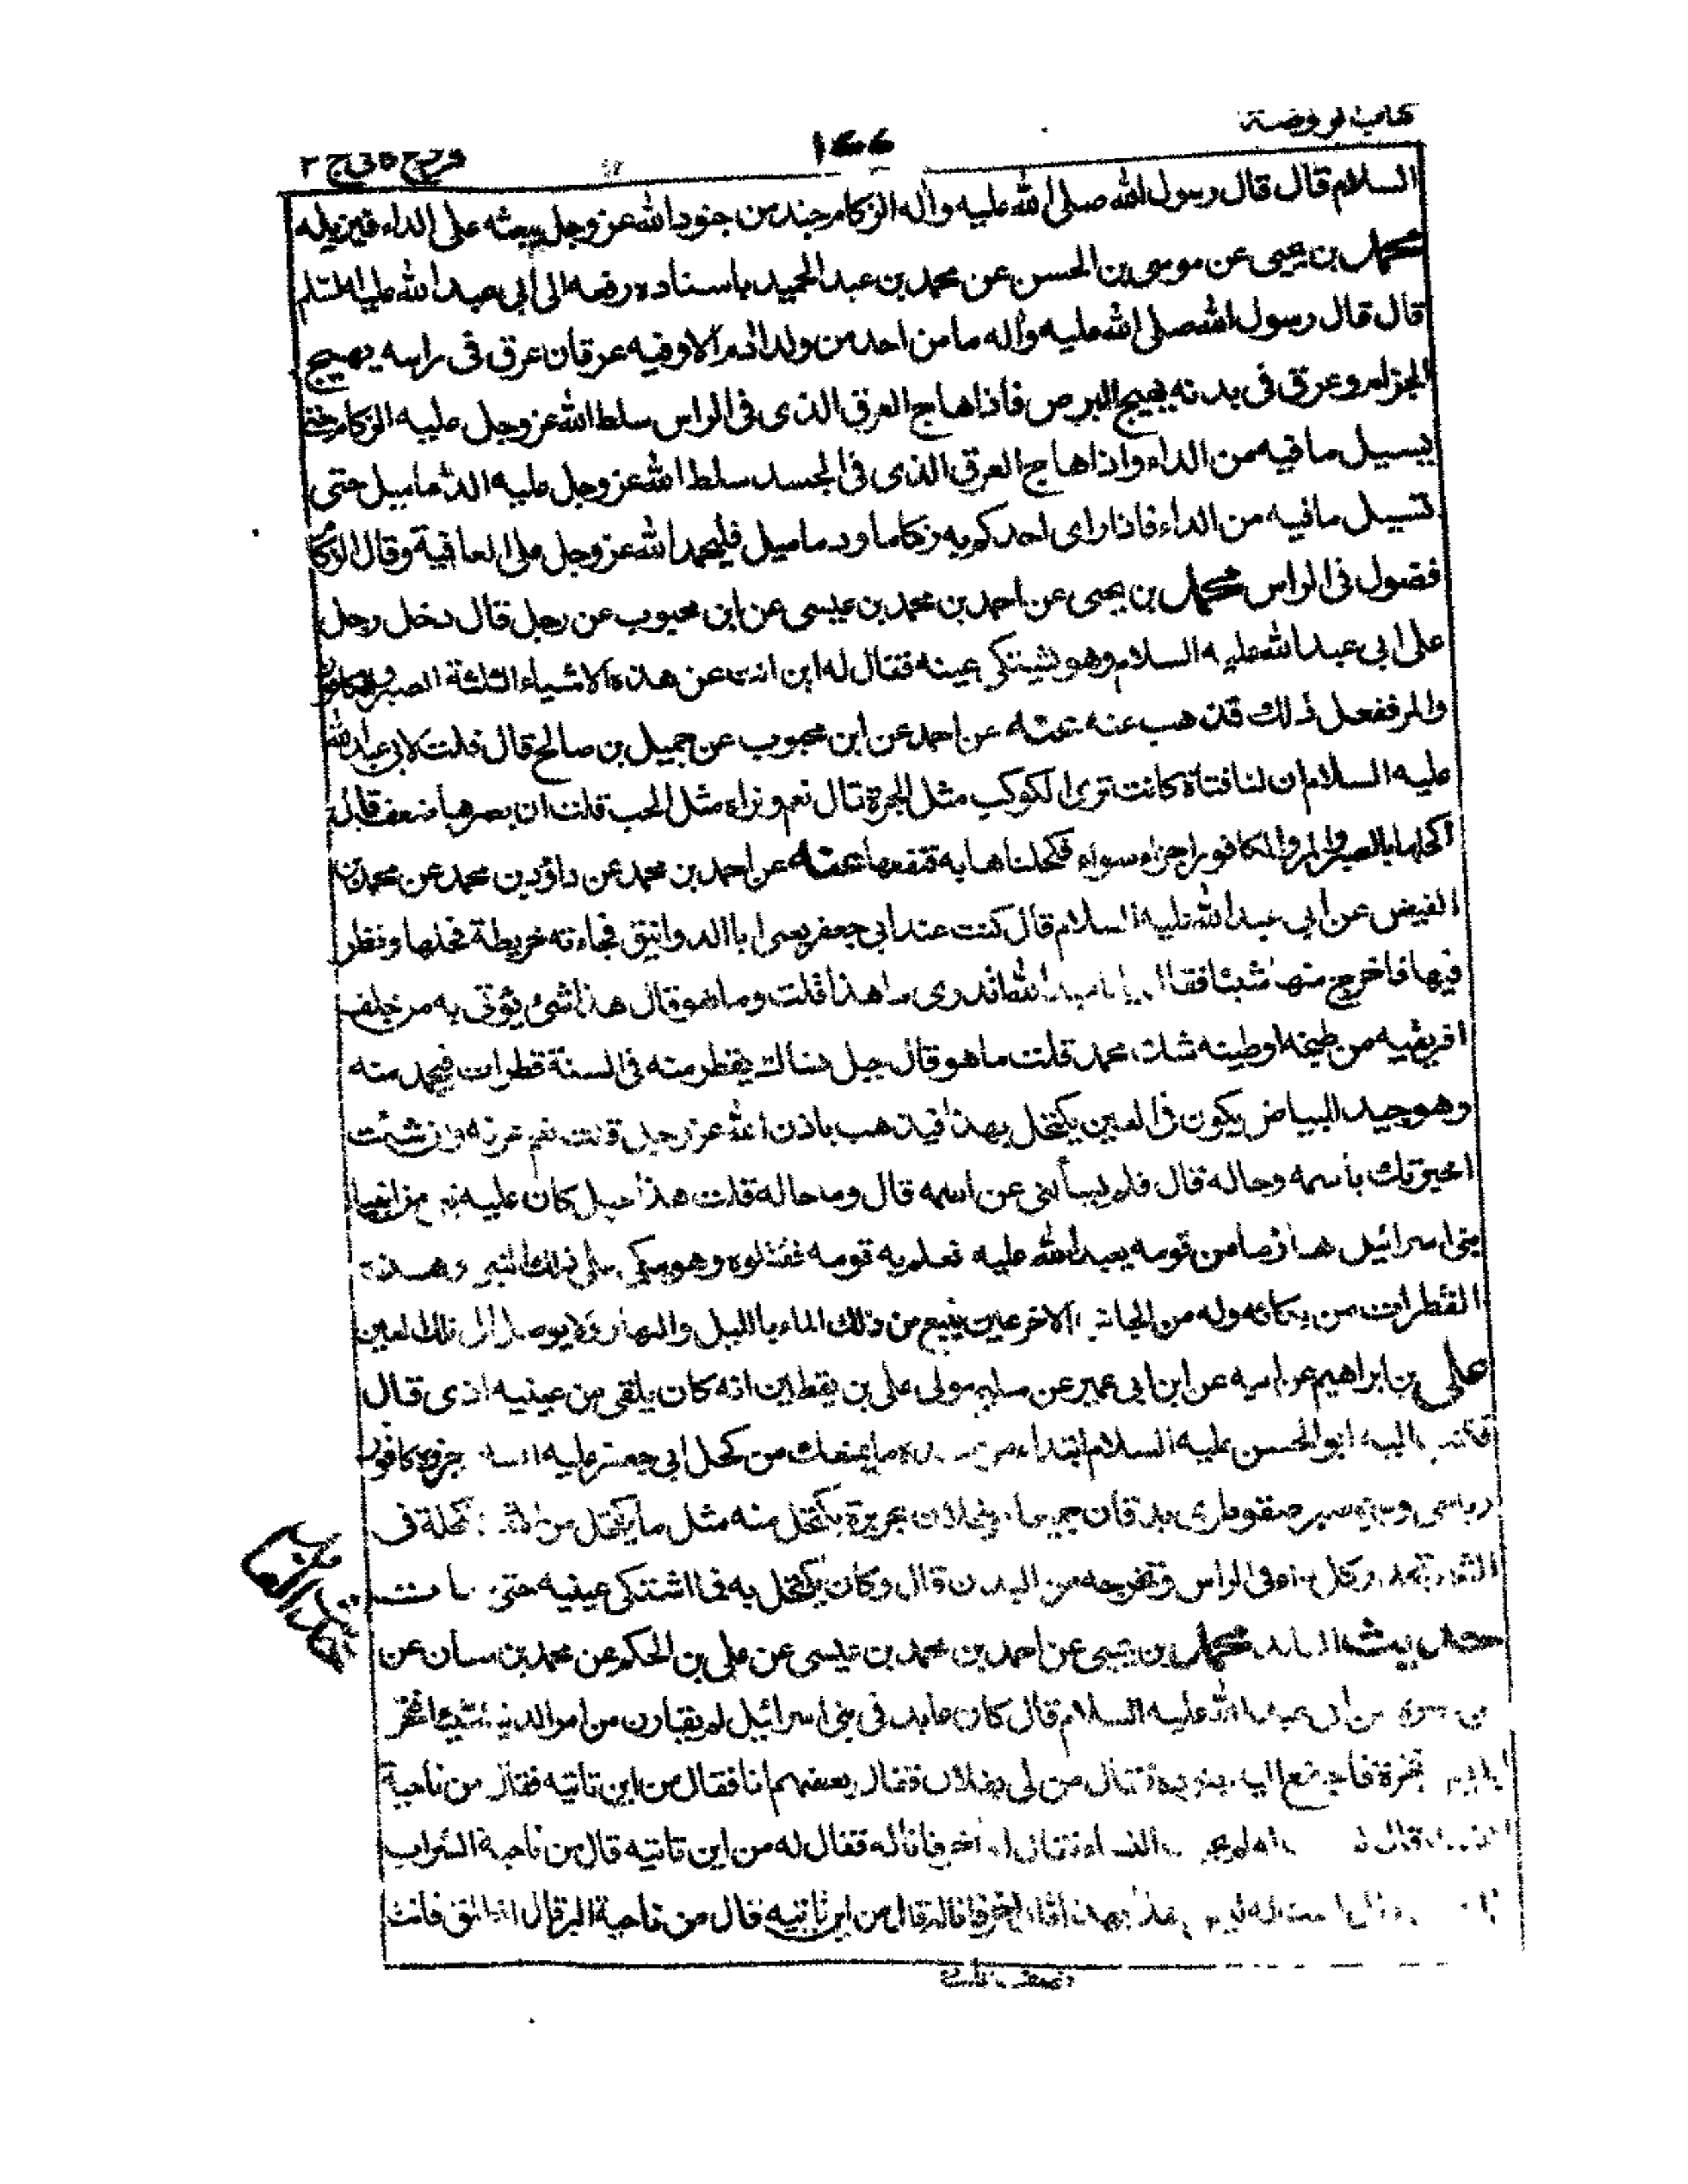 كتاب الروضة
١٧٧
فروع كافى ج ٣
السلام قال قال رسول الله صلى الله عليه واله الزكام جند من جنود الله عز وجل يبعثه على الداء فيزيله
محمد بن يحيى عن موسى بن الحسن عن محمد بن عبد الحميد باسناده رفعه الى ابى عبد الله عليه السلم
قال قال رسول الله صلى الله عليه واله ما من احد من ولد ادم الا وفيه عرقان عرق فى راسه يهيج
الجزام وعرق فى بدنه يهيج البرص فاذا هاج العرق الذى فى الراس سلط الله عز وجل عليه الزكام حتى
يسيل ما فيه من الداء واذا هاج العرق الذى فى الجسد سلط الله عز وجل عليه الدماميل حتى
تسيل ما فيه من الداء فاذا راى احدكم به زكاما ودماميل فليحمد الله عز وجل على العافية وقال الزكام
فضول فى الراس محمد بن يحيى عن احمد بن محمد بن عيسى عن ابن محبوب عن رجل قال دخل رجل
على ابى عبد الله عليه السلام وهو يشتكى عينه فقال له اين انت عن هذه الاشياء الثلثة الصبر والكافور
والمر ففعل ذلك فذهب عنه عنه عن احمد عن ابن محبوب عن جميل بن صالح قال قلت لابى عبد الله
عليه السلام ان لنا فتاة كانت ترى الكوكب مثل الجرة قال نعم وتراه مثل الحب قلت ان بصرها ضعف فقال
اكحلها بالصبر والمر والكافور اجزاء سواء فكحلناها به فنفعها عنه عن احمد بن محمد عن داؤد بن محمد عن محمد بن
الفيض عن ابى عبد الله عليه السلام قال كنت عند ابى جعفر يعنى ابا الدوانيق فجاءته خريطة فحلها ونظر
فيها فاخرج منها شيئا فقال يا ابا عبد الله اتدرى ما هذا قلت وما هو قال هذا شئ يؤتى به من خلف
افريقيه من طنجه او طبنه شك محمد قلت ما هو قال جبل هناك يقطر منه فى السنة قطرات فيجمد منه
وهو جيد للبياض يكون فى العين يكتحل بهذا فيذهب باذن الله عز وجل قلت نعم اعرفه وان شئت
اخبرتك باسمه وحاله قال فلم يسألنى عن اسمه قال وما حاله قلت هذا جبل كان عليه نبى من انبياء
بنى اسرائيل هاربا من قومه يعبد الله عليه فعلم به قومه فقتلوه وهو يبكى على ذلك النبى وهذه
القطرات من بكائه وله من الجانب الاخر عين ينبع من ذلك الماء بالليل والنهار ولا يوصل الى تلك العين
على بن ابراهيم عن ابيه عن ابن ابى عمير عن سليم مولى على بن يقطين انه كان يلقى من عينيه اذى قال
فكتب اليه ابو الحسن عليه السلام ابتداء من عنده ما يمنعك من كحل ابى جعفر عليه السلام جزء كافور
رباحى وجزء صبر صقوطرى يدقان جميعا وينخلان بحريرة يكتحل منه مثل ما يكتحل من الاثمد الكحلة فى
الشهر تحدر كل داء فى الراس وتخرجه من البدن قال وكان يكتحل به فما اشتكى عينيه حتى مات
حديث العابد محمد بن يحيى عن احمد بن محمد بن عيسى عن على بن الحكم عن محمد بن سنان عن
عن ابى عبد الله عليه السلام قال كان عابد فى بنى اسرائيل لم يقارن من امر الدنيا شيئا فنخر
ابليس نخرة فاجتمع اليه جنوده فقال من لى بفلان فقال بعضهم انا فقال من اين تاتيه فقال من ناحية
النساء قال لست له لم يجرب النساء فقال له اخر فانا له فقال له من اين تاتيه قال من ناحية الشراب
قال اخر فانا له قال من اين تاتيه قال من ناحية البر قال انطلق فانت